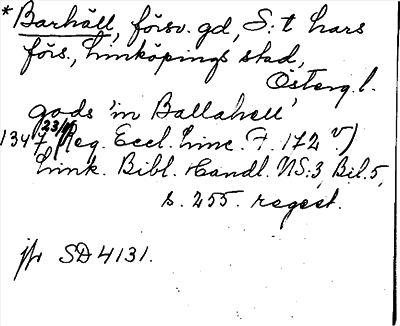 *Barhäll, försv. gd, S:t Lars
förs., Linköpings stad,
Österg. l.
gods 'in Ballahell'
1347 23/1 (Reg. Eccl. Linc. F. 172 v)
Link. Bibl. Handl. NS:3, Bil. 5,
s. 255. regest.
jfr SD 4131.